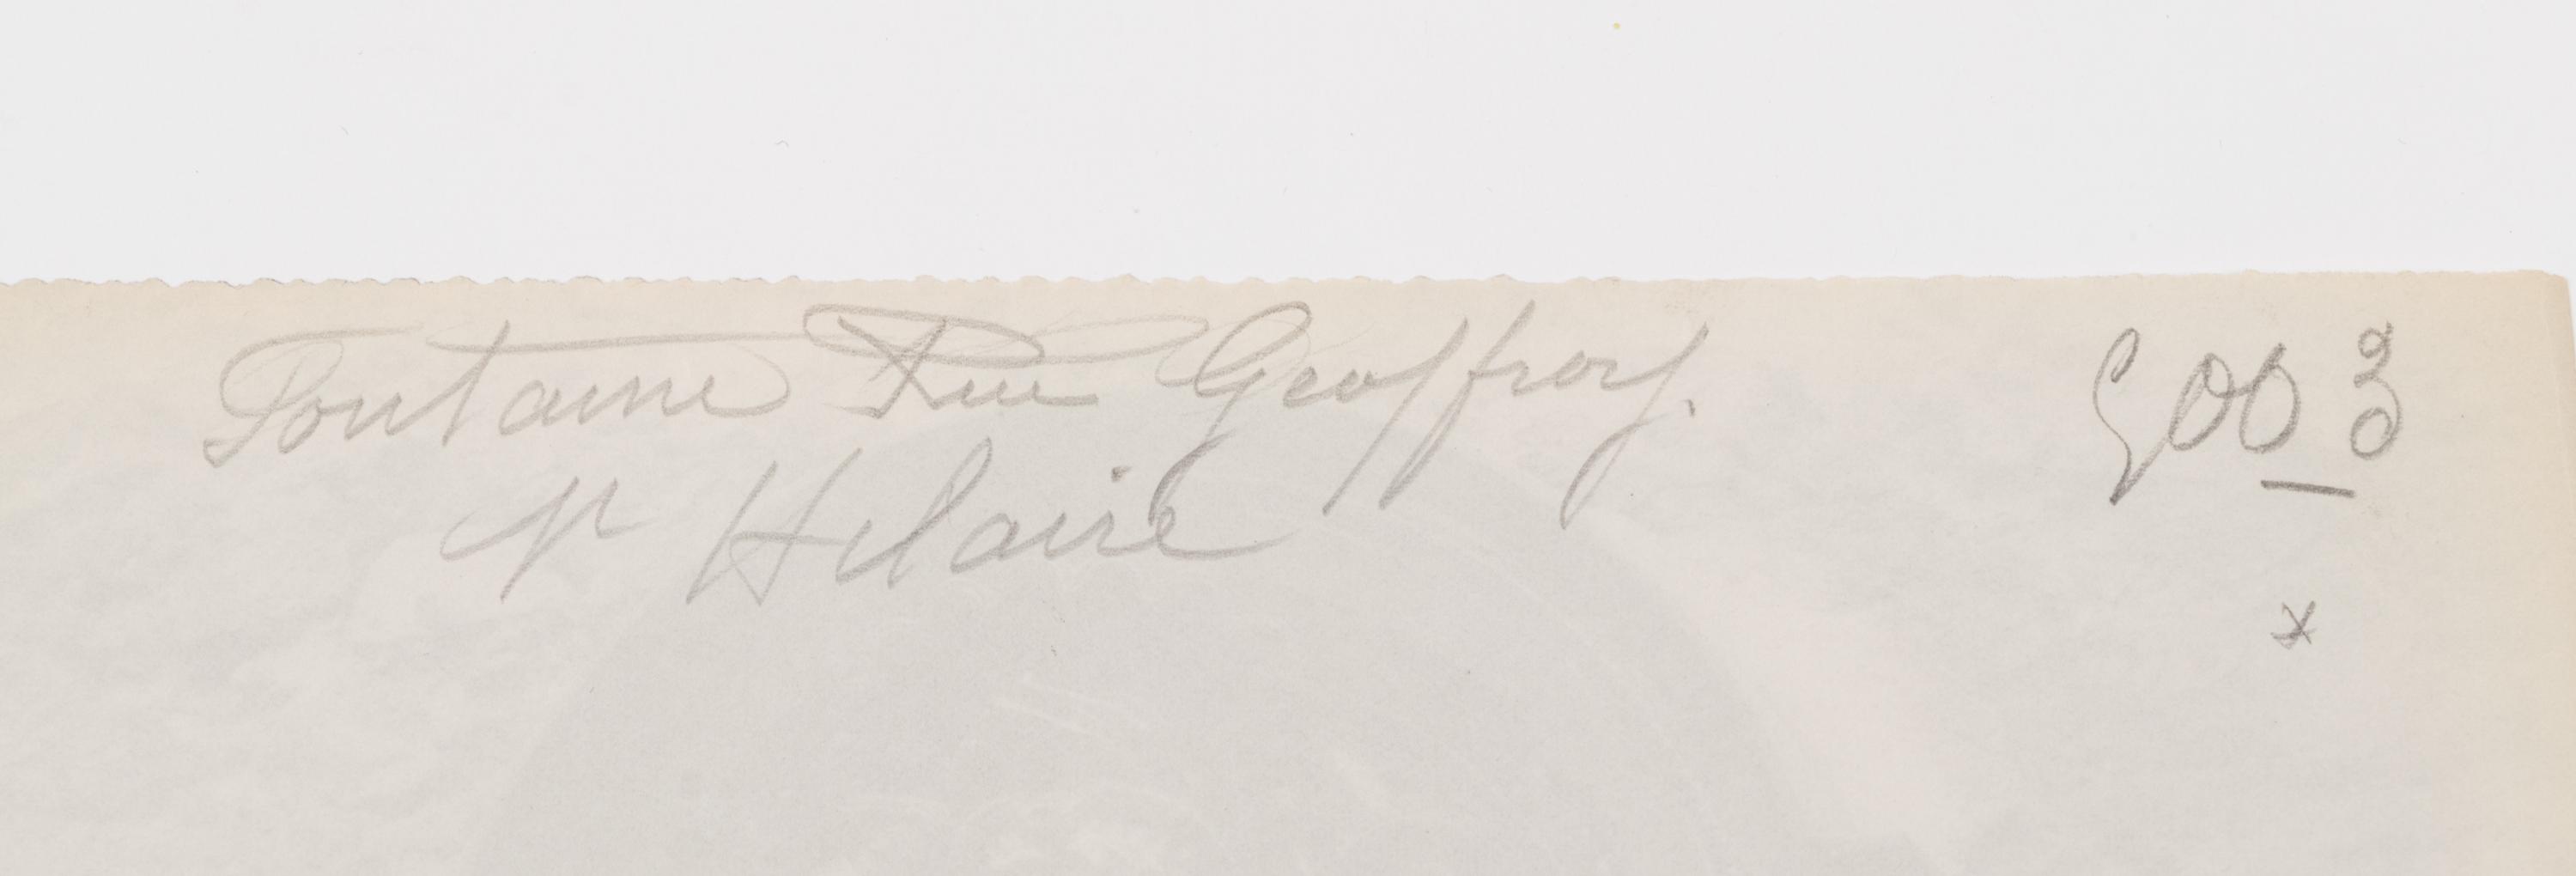 Fontaine Rue Geoffroy. 5003
St Hilaire
x